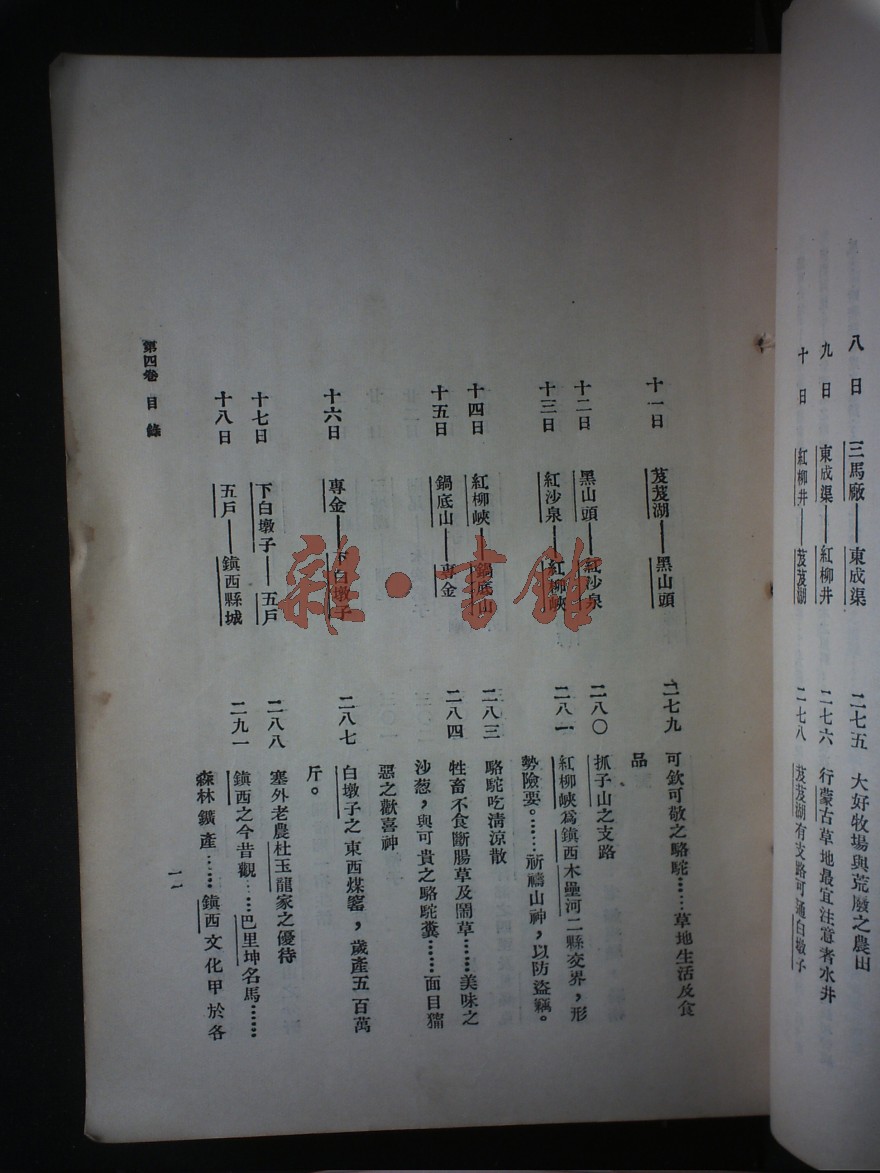 八日　三馬廠——東成渠　二七五　大好牧場與荒廢之農田
九日　東成渠——紅柳井　二七六　行蒙古草地最宜注意者水井
十日　紅柳井——芨芨湖　二七八　芨芨湖有支路可通白墩子
十一日　芨芨湖——黑山頭　二七九　可欽可敬之駱駝……草地生活及食
品
十二日　黑山頭——紅沙泉　二八〇　抓子山之支路
十三日　紅沙泉——紅柳峽　二八一　紅柳峽爲鎮西木壘河二縣交界，形
勢險要。……祈禱山神，以防盜竊。
十四日　紅柳峽——鍋底山　二八三　駱駝吃清涼散
十五日　鍋底山——專金　二八四　牲畜不食斷腸草及鬧草……美味之
沙葱，與可貴之駱駝糞……面目猙
惡之歡喜神
十六日　專金——下白墩子　二八七　白墩子之東西煤窰，歲產五百萬
斤。
十七日　下白墩子——五戶　二八八　塞外老農杜玉龍家之優待
十八日　五戶——鎮西縣城　二九一　鎮西之今昔觀……巴里坤名馬……
森林鑛產……鎮西文化甲於各
第四卷　目錄
一一
雜·書館